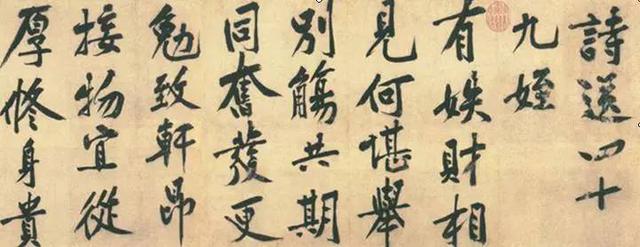 詩送四十
九姪
有財相
見何堪舉
別觴共期
同奮發更
勉致軒昂
接物宜從
厚修身貴